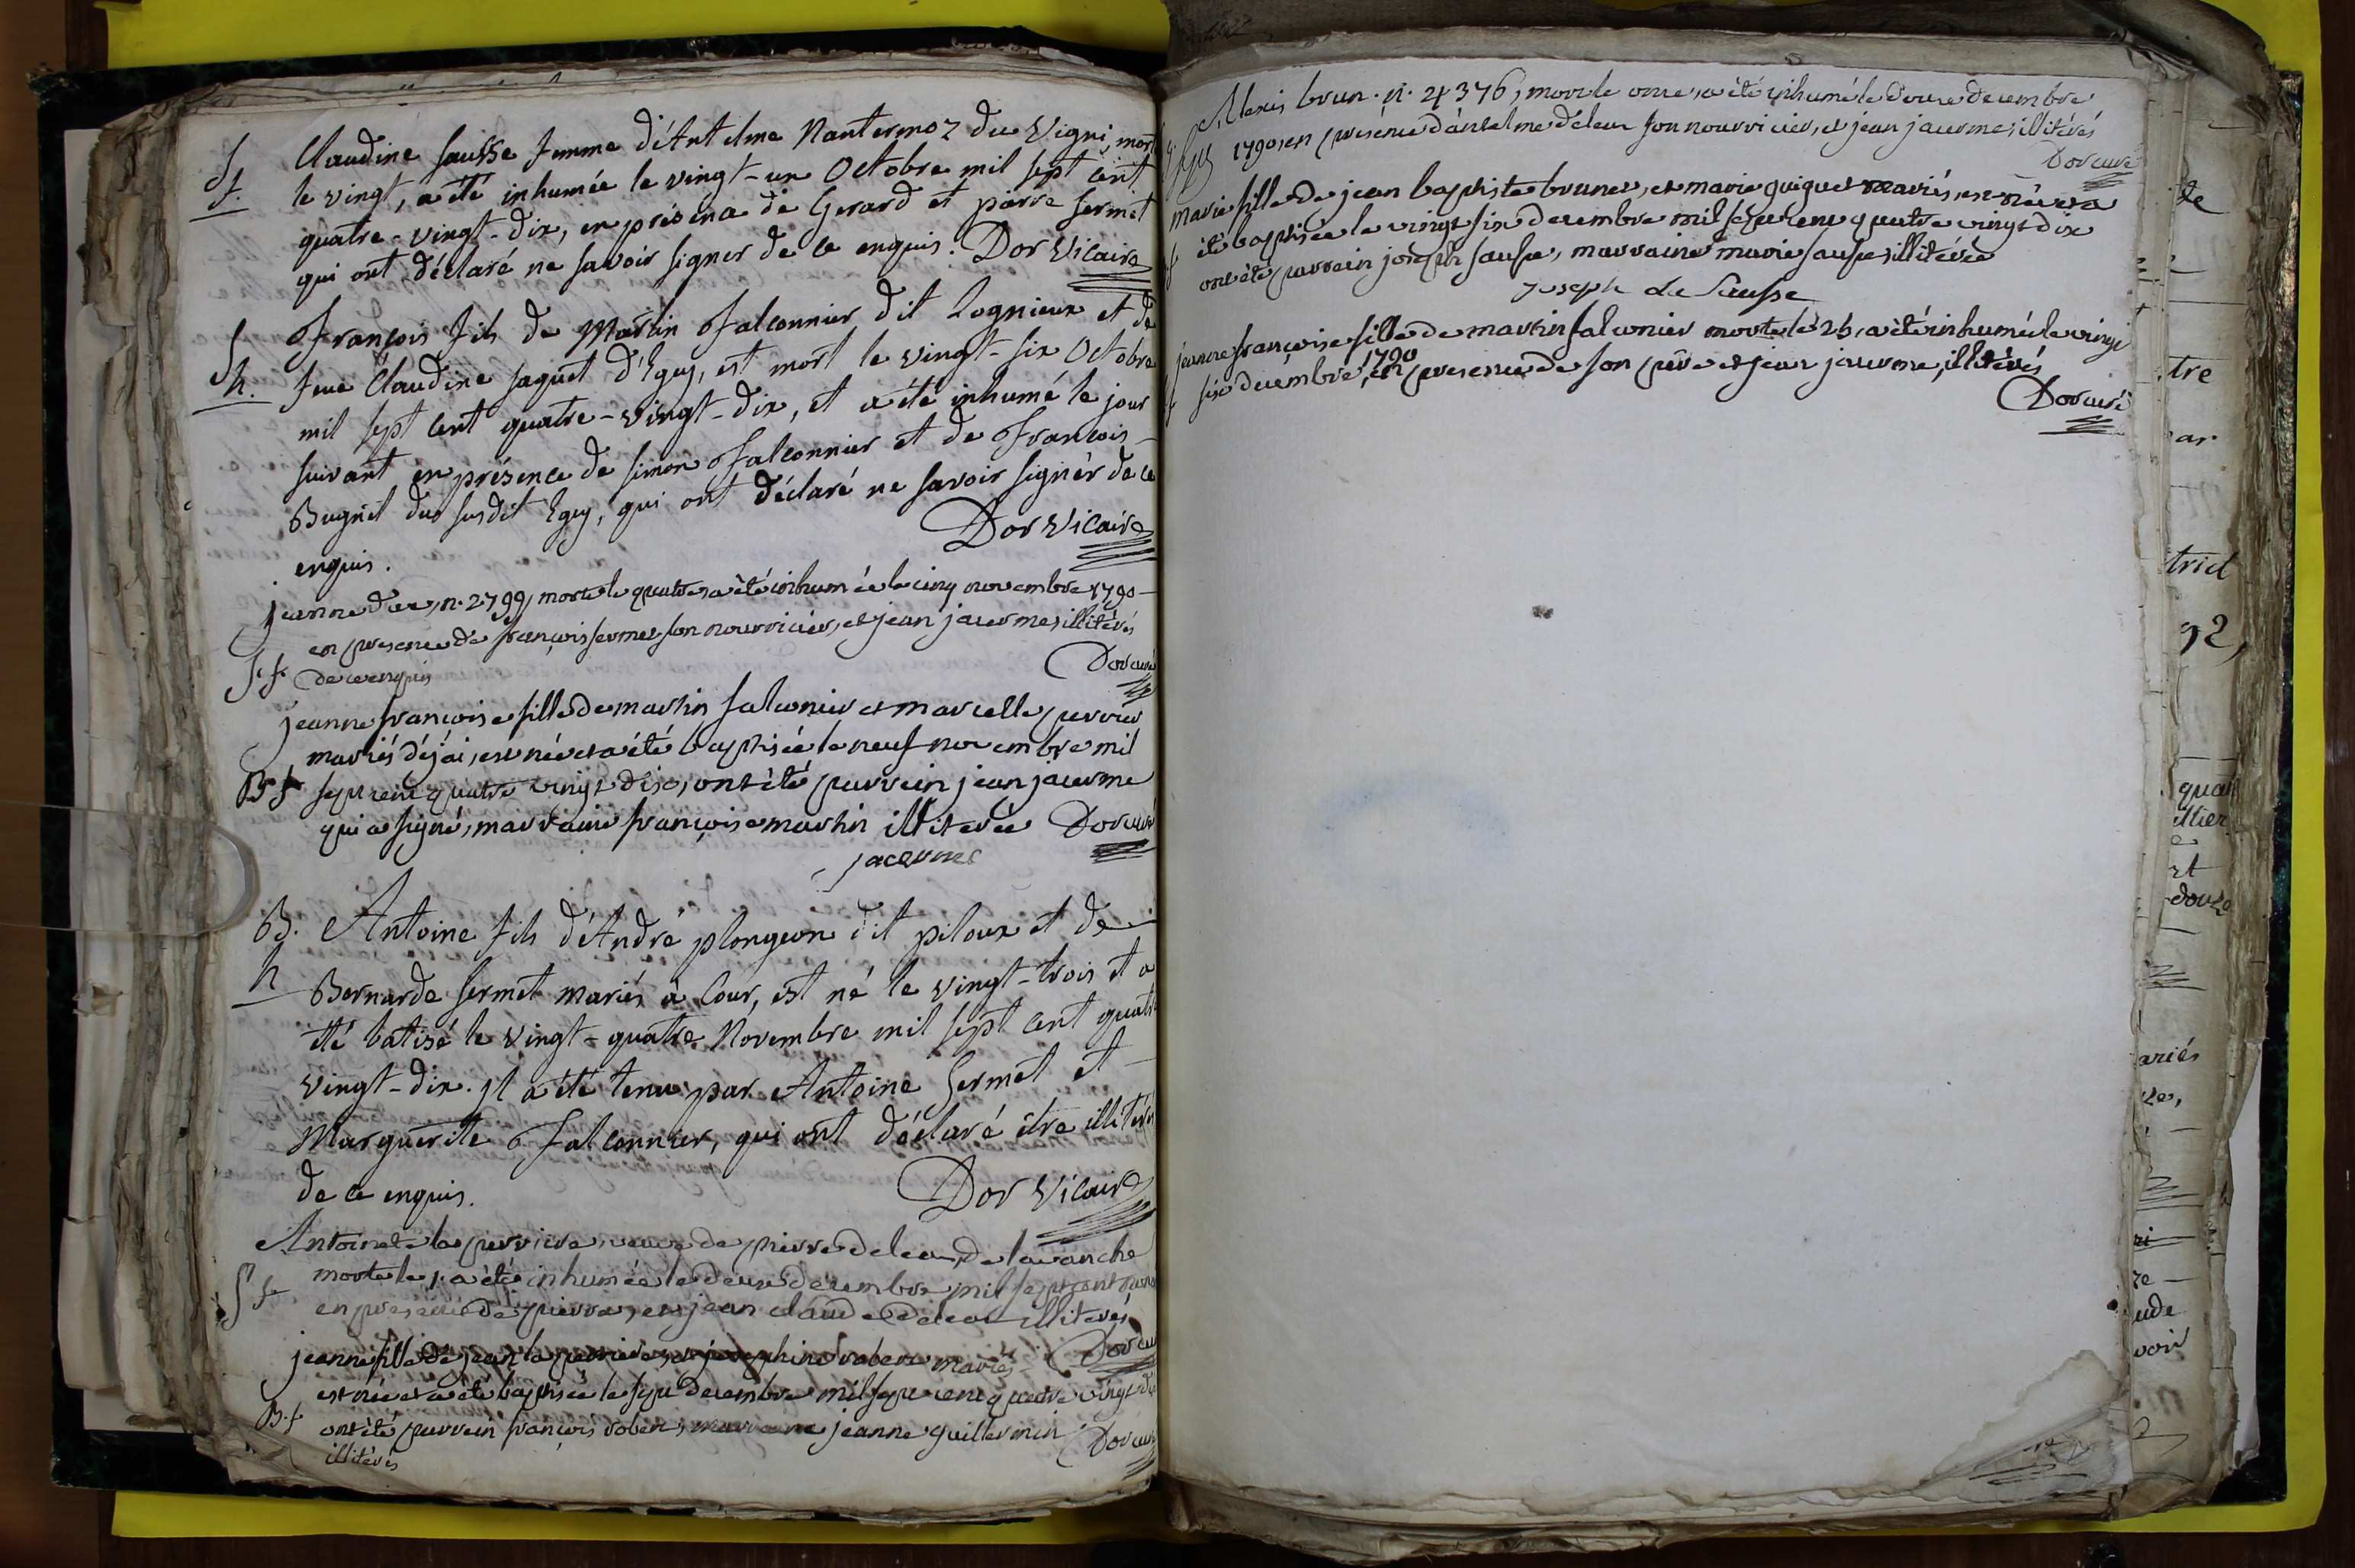 S. Claudine Sausse femme d'Antelme Nantermoz du Vigni, mort
f. le vingt, a été inhumée le vingt-un Octobre mil sept cent
quatre-vingt-dix, en présence de Gerard et pierre Sermet
qui ont déclaré ne savoir signer de ce enquis. Dor Vicaire
S. François fils de Martin Falconnier dit Lognieux et de
h. feue Claudine Saquet d'Egey, est mort le vingt-six Octobre
mil sept cent quatre-vingt-dix, et a été inhumé le jour
suivant en présence de Simon Falconnier et de François
Bugnit du susdit Egey, qui ont déclaré ne savoir signer de ce
enquis. Dor Vicaire
jeanne n. 2799, morte le quatre, a été inhumée le cinq novembre 1790
en presence de françois sermet son nourricier, et jean jacerme, illitérés
S. f. de ce enquis Dor curé
jeanne françoise fille de martin falconier et marcelle perrier
mariés d'éjai, est née et a été baptisée le neuf novembre mil
B f sept cent quatre vingt dix, ont été parrein jean jacerme
qui a signé, marraine françoise martin illiterée Dor curé
jacerme
B. Antoine fils d'André plongeon dit piloux et de
h Bernarde Sermet mariés à Cour, est né le vingt-trois et a
été batisé le vingt-quatre Novembre mil sept cent quatre
vingt-dix. Il a été tenu par Antoine Sermet et
Marguerite Falconnier, qui ont déclaré être illitérés
de ce enquis. Dor Vicaire
Antoinete la perriere, veuve de pierre deleau de lavanche
S f morte le 1. a été inhumée le deux décembre mil sept cent
en presence de pierre, et jean claude deleau illiterés
jeanne fille de jean la perriere, et josephine robert mariés Dor curé
est née et a été baptisée le sept decembre mil sept cent quatre vingt dix
B. f ont été parrein françois robert, marraine jeanne guillermin
illitérés Dor curé
Alexis brun. n. 24376, mort le onze, a été inhumé le douze decembre
1790, en presence d'antelme deleau son nourricier, et jean jacerme, illitérés
Dor curé
marie fille de jean baptiste brunet, et marie guiguet mariés, est née et a
été baptisée le vingt six decembre mil sept cent quatre vingt dix
ont été parrein joseph sausse, marraine marie sausse, illitérée
Joseph de Sausse
jeanne françoise fille de martin falconier morte le 26, a été inhumée le vingt
six décembre, 1790 en presence de son père et jean jacerme, illitérés
Dor curé
tre
ar
trict
92,
quat
illier
et
douze
ariés
re
ude
voir